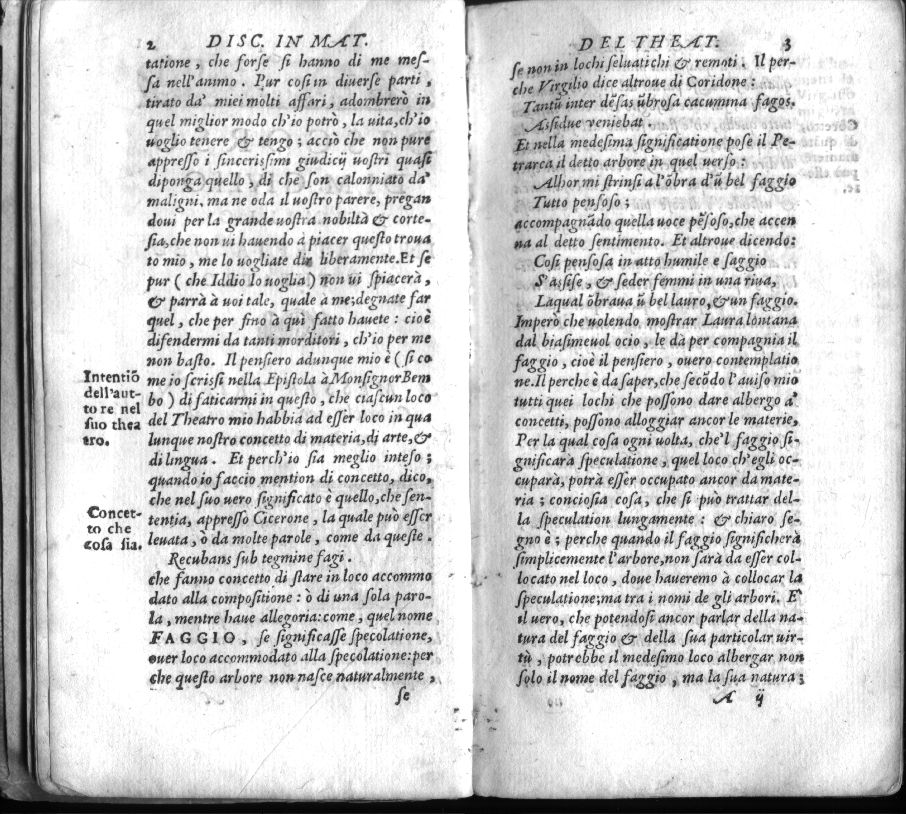 2 DISC. IN MAT.
tatione, che forse si hanno di me mes-
sa nell'animo. Pur cosi in diuerse parti,
tirato da' miei molti affari, adombrerò in
quel miglior modo ch'io potrò, la uita, ch'io
uoglio tenere & tengo; acciò che non pure
appresso i sincerissimi giudicij uostri quasi
diponga quello, di che son calonniato da'
maligni, ma ne oda il uostro parere, pregan
doui per la grande uostra nobiltà & corte-
sia, che non ui hauendo à piacer questo troua
to mio, me lo uogliate dir liberamente. Et se
pur (che Iddio lo uoglia) non ui spiacerà,
& parrà à uoi tale, quale à me; degnate far
quel, che per fino à quì fatto hauete: cioè
difendermi da tanti morditori, ch'io per me
non basto. Il pensiero adunque mio è (si co
me io scrissi nella Epistola à Monsignor Bem
bo) di faticarmi in questo, che ciascun loco
del Theatro mio habbia ad esser loco in qua
lunque nostro concetto di materia, di arte, &
di lingua. Et perch'io sia meglio inteso;
quando io faccio mention di concetto, dico,
che nel suo uero significato è quello, che sen-
tentia, appresso Cicerone, la quale può esser
leuata, ò da molte parole, come da queste.
Recubans sub tegmine fagi.
che fanno concetto di stare in loco accommo
dato alla compositione: ò di una sola paro-
la, mentre haue allegoria: come, quel nome
FAGGIO, se significasse specolatione,
ouer loco accommodato alla specolatione: per
che questo arbore non nasce naturalmente,
se
Intentiō
dell'aut-
to re nel
suo thea
tro.
Concet-
to che
cosa sia.
DEL THEAT. 3
se non in lochi seluatichi & remoti. Il per-
che Virgilio dice altroue di Coridone:
Tantū inter dēsas ūbrosa cacumina fagos.
Assidue veniebat
Et nella medesima significatione pose il Pe-
trarca il detto arbore in quel uerso:
Alhor mi strinsi a l'ōbra d'ū bel faggio
Tutto pensoso;
accompagnādo quella uoce pēsoso, che accen
na al detto sentimento. Et altroue dicendo:
Cosi pensosa in atto humile e saggio
S'assise, & seder femmi in una riua,
Laqual ōbraua ū bel lauro, & un faggio.
Imperò che uolendo mostrar Laura lontana
dal biasimeuol ocio, le dà per compagnia il
faggio, cioè il pensiero, ouero contemplatio
ne. Il perche è da saper, che secōdo l'auiso mio
tutti quei lochi che possono dare albergo a'
concetti, possono alloggiar ancor le materie.
Per la qual cosa ogni uolta, che'l faggio si-
gnificarà speculatione, quel loco ch'egli oc-
cuparà, potrà esser occupato ancor da mate-
ria; conciosia cosa, che si può trattar del-
la speculation lungamente: & chiaro se-
gno è; perche quando il faggio significherà
simplicemente l'arbore, non sarà da esser col-
locato nel loco, doue haueremo à collocar la
speculatione; ma tra i nomi de gli arbori. E'
il uero, che potendosi ancor parlar della na-
tura del faggio & della sua particolar uir-
tù, potrebbe il medesimo loco albergar non
solo il nome del faggio, ma la sua natura;
A ij